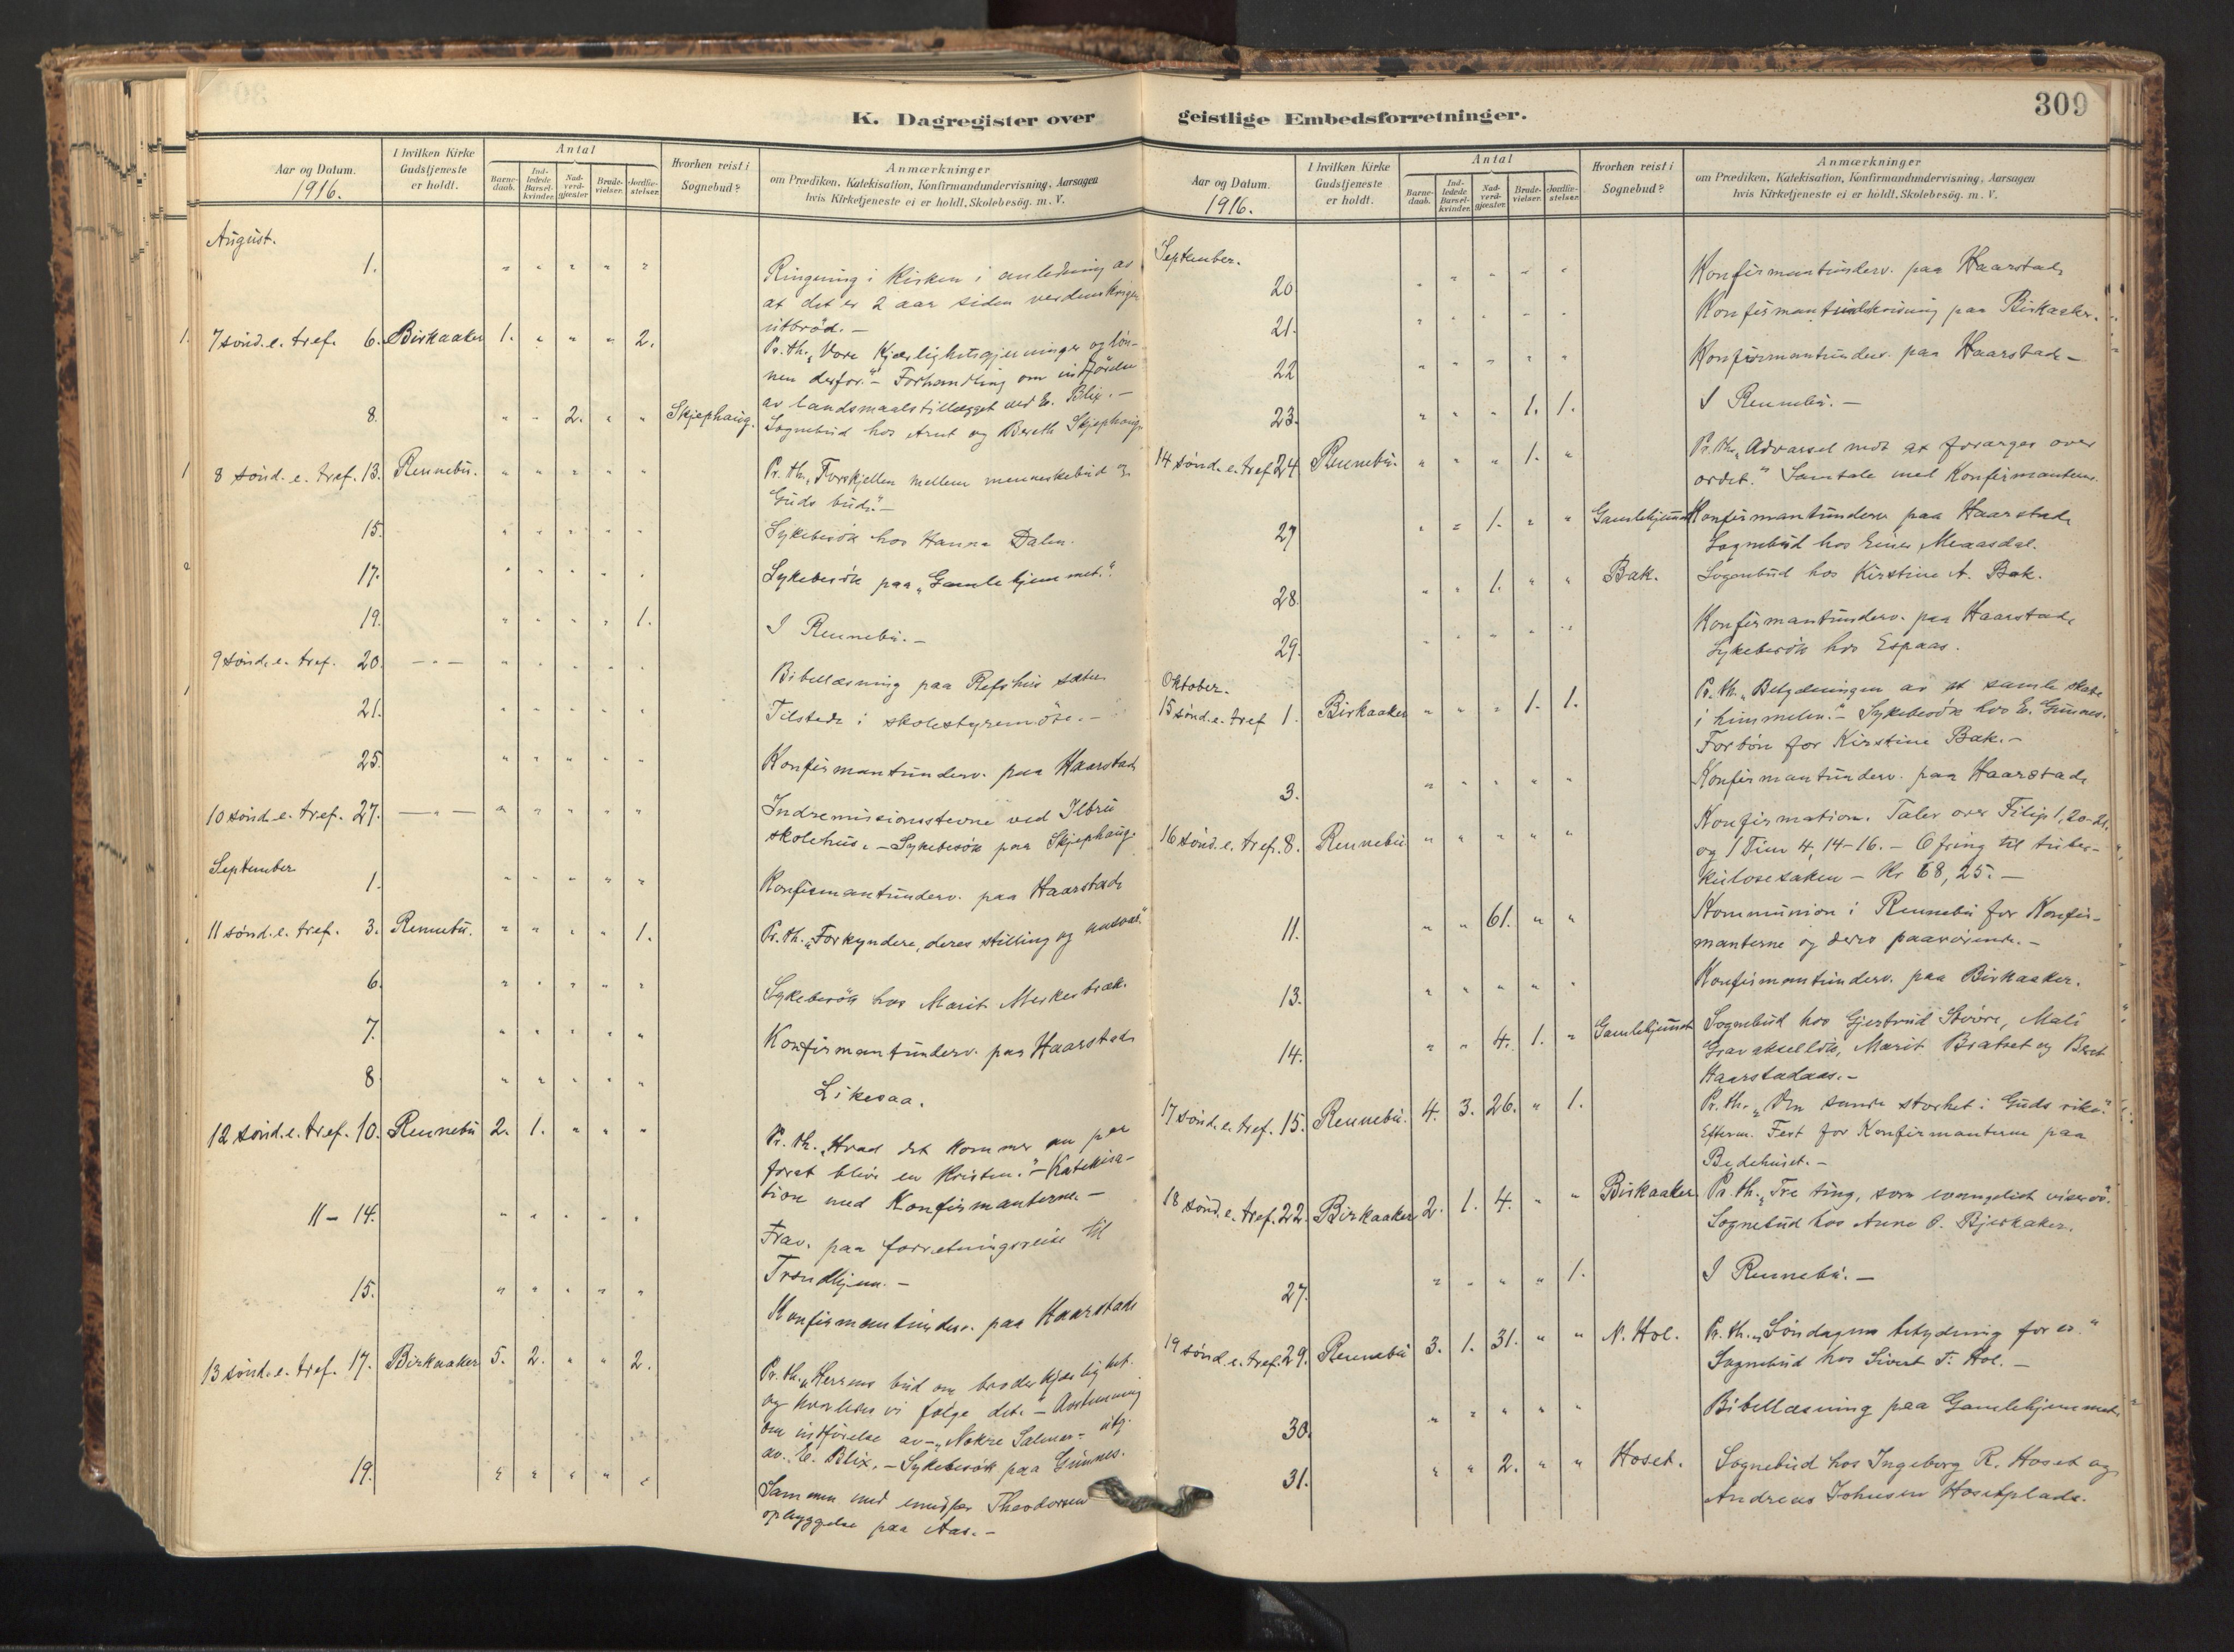 K. Dagregister over geistlige Embedsforretninger.
309
Aar og Datum.
1916.
I hvilken Kirke
Gudstjeneste
er holdt.
Antal
Barne-
daab.
Ind-
ledede
Barsel-
kvinder.
Nad-
verd-
gjæster.
Brude-
vielser.
Jordfæ-
stelser.
Hvorhen reist i
Sognebud?
Anmærkninger
om Prædiken, Katekisation, Konfirmandundervisning, Aarsagen
hvis Kirketjeneste ei er holdt, Skolebesøg. m. V.
August.
1. " " " " " Ringning i Kirken i anledning av
at det er 2 aar siden verdenskrigen
utbrød. —
7 sønd. e. tref. 6. Birkaaker 1. " " " 2. Pr. th. „Vore Kjærlighetsgjerninger og løn-
nen derfor." — Forhandling om indførelse
av landsmaalstillegget ved E. Blix. —
8. " " 2. " " Skjephaug. Sognebud hos Arnt og Bereth Skjephaug.
8 sønd. e. tref. 13. Rennebu. " " " " " Pr. th. „Forskjellen mellem menneskebud og
Guds bud." —
15. " " " " " Sykebesøk hos Hanna Dalen.
17. " " " " " Sykebesøk paa „Gamlehjemmet."
19. " " " " 1. I Rennebu. —
9 sønd. e. tref. 20. — " — " " " " " Bibellæsning paa Refshus sæter
21. " " " " " Tilstede i skolestyremøte. —
25. " " " " " Konfirmantunderv. paa Haarstad.
10 sønd. e. tref. 27. — " — " " " " " Indremisionsstevne ved Ilbru
skolehus. — Sykebesøk paa Skjephaug.
September
1. " " " " " Konfirmantunderv. paa Haarstad.
11 sønd. e. tref. 3. Rennebu. " " " " 1. Pr. th. „Forkyndere, deres stilling og ansvar."
6. " " " " " Sykebesøk hos Marit Merkesbæk.
7. " " " " " Konfirmantunderv. paa Haarstad.
8 " " " " " Likesaa.
12 sønd. e. tref. 10. Rennebu 2. 1. " " " Pr. th. „Hvad det kommer an paa
forat blive en Kristen." — Katekisa-
tion med Konfirmanterne —
11 – 14. " " " " " Frav. paa forretningsreise til
Trondhjem. —
15. " " " " " Konfirmantunderv. paa Haarstad.
13 sønd. e. tref. 17. Birkaaker 5. 2. " " 2. Pr. th. „Herrens bud om broderkjærlighet
og hvorledes vi følge det. — Avstemning
om indførelse av — „Nokre Salmar" utg.
av E. Blix. — Sykebesøk paa Gunnes.
19. " " " " " Sammen med Theodorsen
opbyggelse paa Aas. —
Aar og Datum.
1916.
I hvilken Kirke
Gudstjeneste
er holdt.
Antal
Barne-
daab.
Ind-
ledede
Barsel-
kvinder.
Nad-
verd-
gjæster.
Brude-
vielser.
Jordfæ-
stelser.
Hvorhen reist i
Sognebud?
Anmærkninger
om Prædiken, Katekisation, Konfirmandundervisning, Aarsagen
hvis Kirketjeneste ei er holdt, Skolebesøg. m. V.
September.
20. " " " " " Konfirmantunderv. paa Haarstad.
21. " " " " " paa Birkaaker.
22 " " " " " Konfirmantunderv. paa Haarstad —
23. " " " 1. 1. I Rennebu. —
14 sønd. e. tref. 24 Rennebu. " " " 1. " Pr. th. „Advarsel mot at forarges over
ordet." Samtale med Konfirmanterne.
27 " " 1. " " Gamlehjemmet Konfirmantunderv. paa Haarstad.
Sognebud hos Meaasdal.
28. " " 1. " " Bak. Sognebud hos Kirstine A. Bak.
29. " " " " " Konfirmantunderv. paa Haarstad.
Sykebesøk hos Espaas.
Oktober.
15 sønd. e. tref 1. Birkaaker " " " 1. 1. Pr. th. „Betydningen av at samle skate
i himmelen." — Sykebesøk hos E. Gunnes.
Forbøn for Kirstine Bak. —
3. " " " " " Konfirmantunderv. paa Haarstad.
16 sønd. e. tref. 8. Rennebu " " " " " Konfirmation. Taler over Filip 1, 20-21.
og 1 Tim 4, 14-16. — Ofring til tuber-
kulosesaken — Kr 68,25. —
11. " " 61. " " Kommunion i Rennebu for Konfir-
manterne og deres paarørende. —
13. " " " " " Konfirmantunderv. paa Birkaaker.
14. " " 4. 1. " Gamlehjemmet Sognebud hos Gjertrud Støre, Mali
Gravaksellik, Marit Bratset og Beret
Haarstadaas. —
17 sønd. e. tref. 15. Rennebu. 4. 3. 26. " 1. Pr. th. „Den sande storhet i Guds rike."
Efterm. Fest for Konfirmanterne paa
Bedehuset. —
18 sønd. e. tref. 22. Birkaaker 2. 1. 4. " " Birkaaker. Pr. th. „Tre ting, som evangeliet viser os".
Sognebud hos Anne O. Bjerkaker.
27. " " " " 1. I Rennebu. —
19 sønd. e. tref. 29. Rennebu 3. 1. 31. " " N. Hol. Pr. th. „Søndagens betydning for os."
Sognebud hos Sivert T. Hol. —
30. " " " " " Bibellæsning paa Gamlehjemmet.
31. " " 2. " " Hoset. Sognebud hos Ingeborg R. Hoset og
Andreas Johnsen Hosetplads.